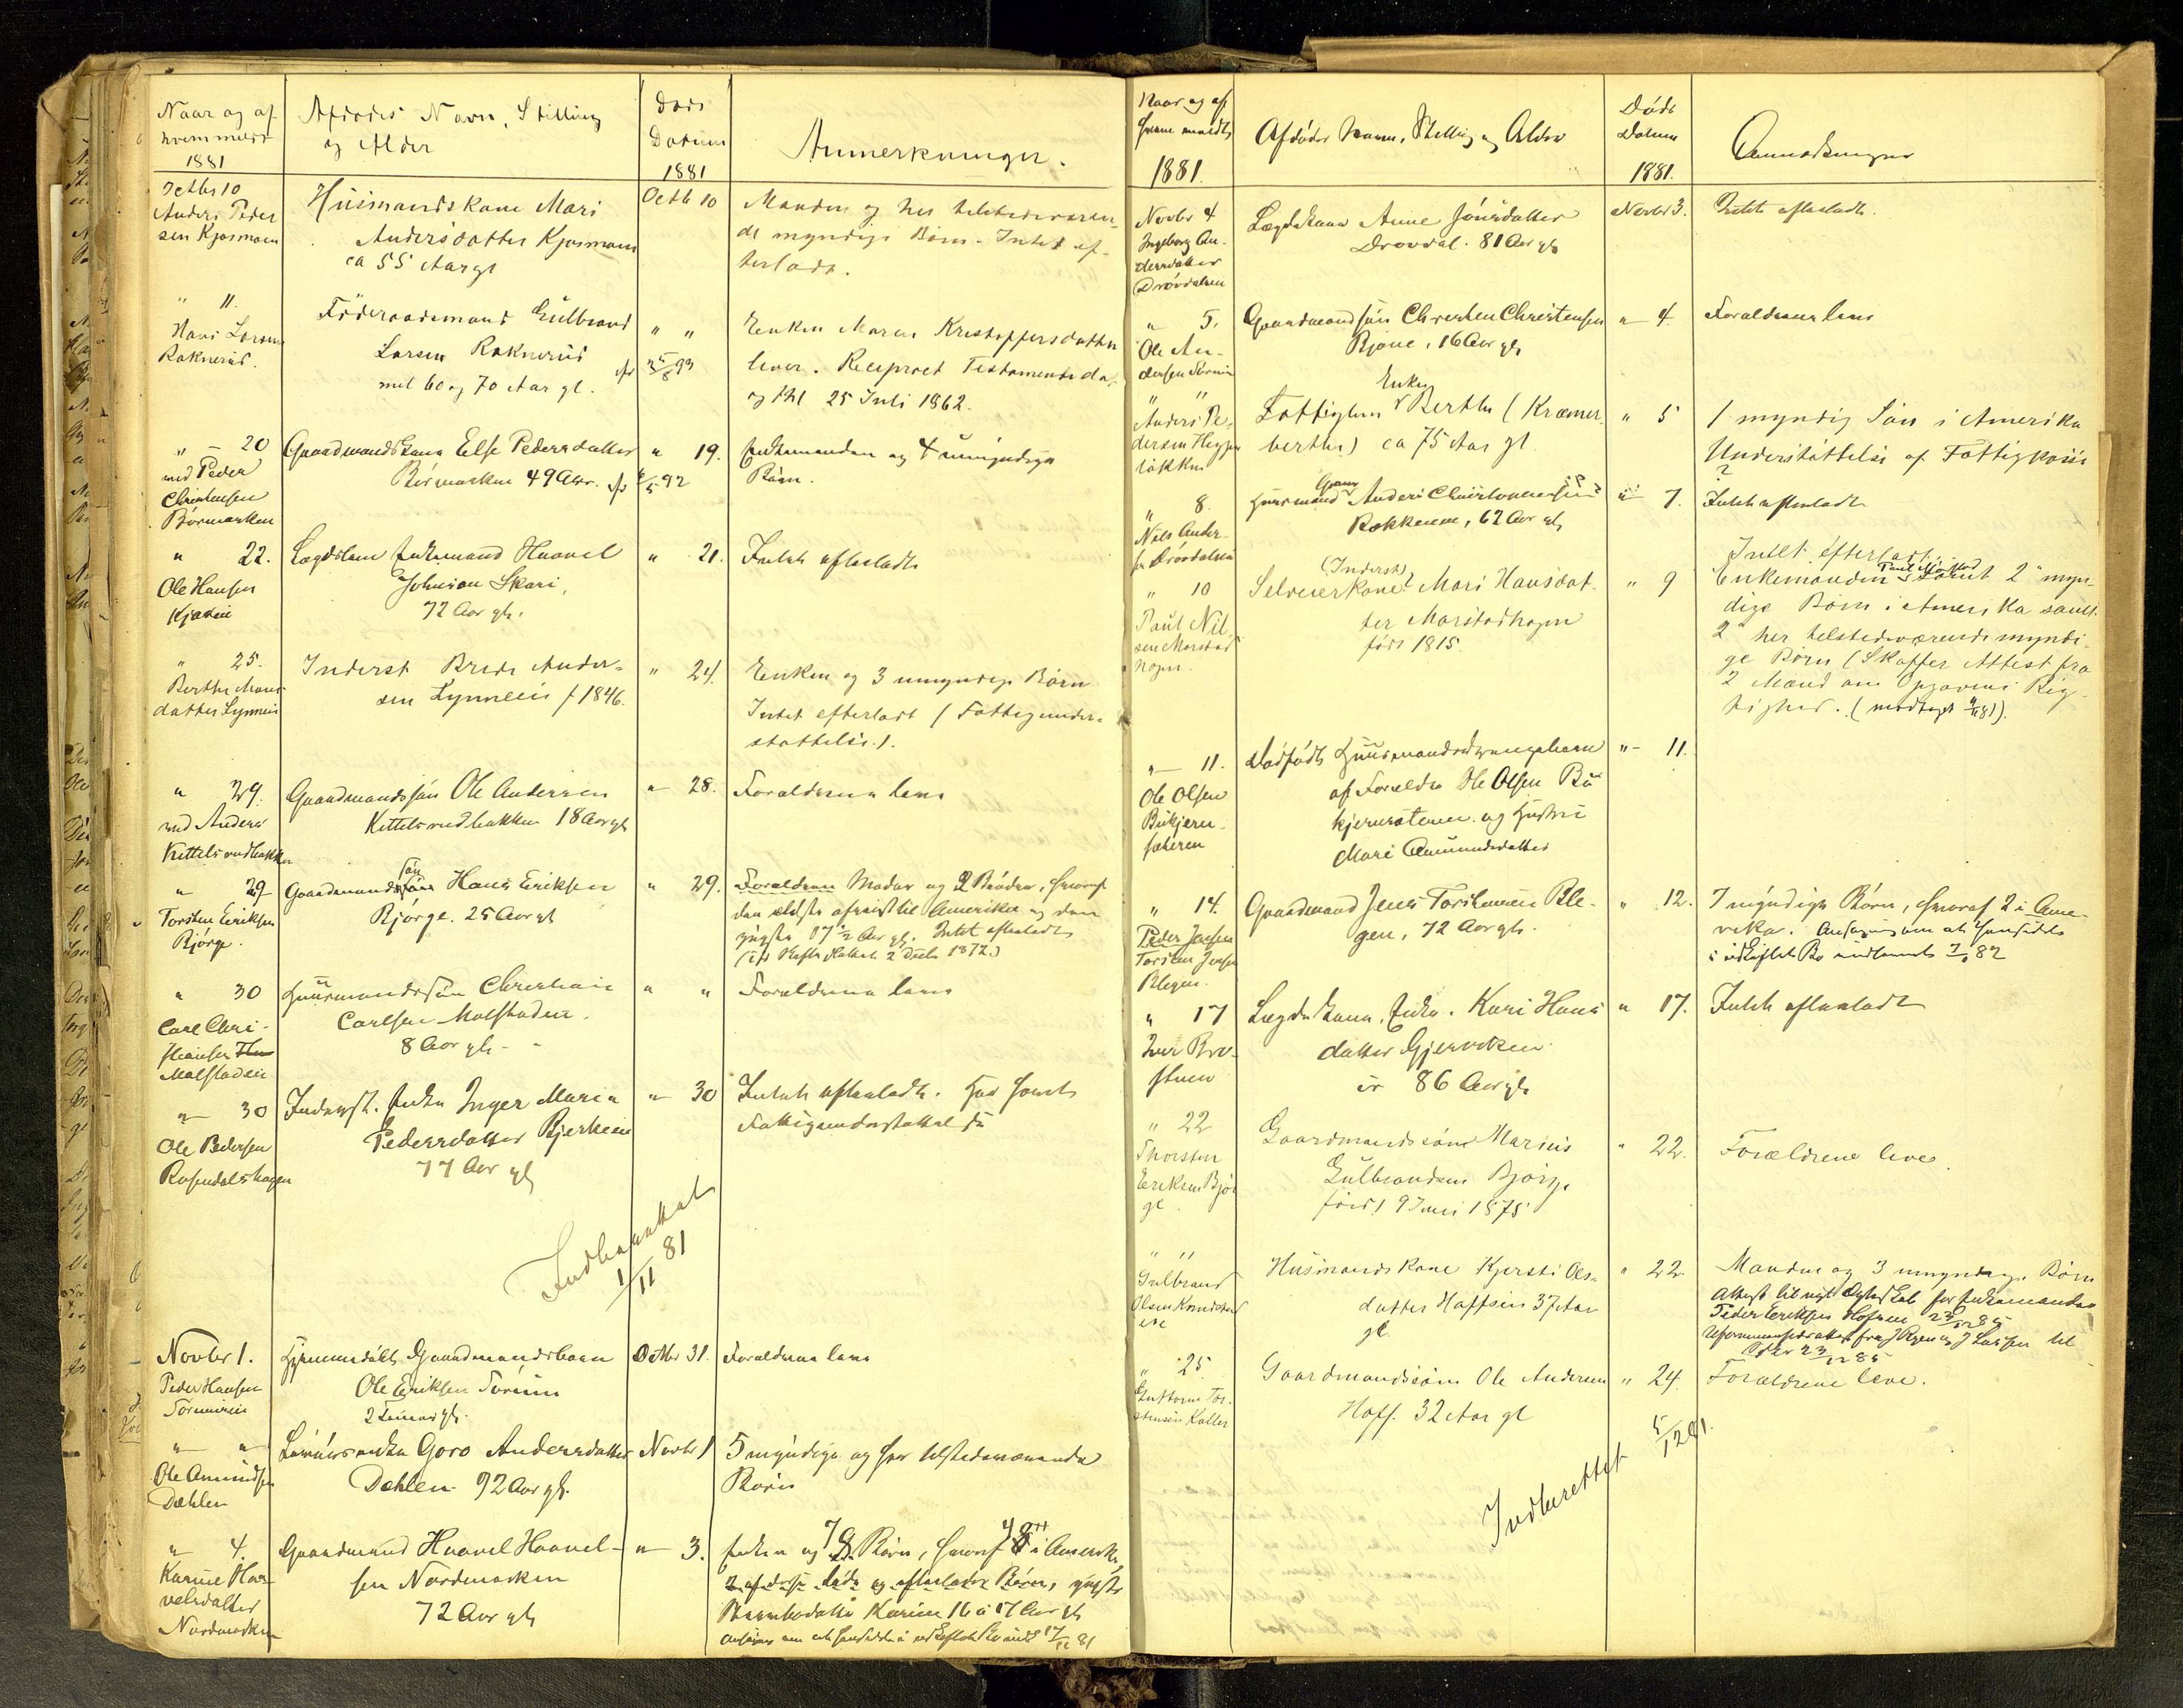 Naar og af
hvem meldt
1881
Afdødes Navn, Stilling
og Alder
Døds
Datum
1881
Anmerkninger.
Octbr 10
Anders Peder
sen Kjosmoen
Husmandskone Mari
Andersdatter Kjosmoen
ca 55 Aar gl
Octb 10
Manden og her tilstedeværen-
de myndige Børn. Intet ef-
terladt.
" 11.
Hans Larsen
Roknerud.
Föderaadsmand Gulbrand
Larsen Roknerud
mel 60 og 70 Aar gl.
" "
Enken Maren Kristoffersdatter
lever. Reciproct Testamente da-
25 Juli 1862.
" – 20
ved Peder
Christensen
Börmarken
Gaardmandskone Else Pedersdatter
Börmarken 49 Aar.
" 19.
Enkemanden og 4 umyndige
Börn.
" 22.
Ole Hansen
Lægdslem Enkemand Haavel
Johnsen Skari,
72 Aar gl.
" 21.
Intet efterladt
" 25.
Berthe Mons
datter Lynneie
Inderst Brede Ander-
sen Lynneie f 1846.
" 24.
Enken og 3 umyndige Børn
Intet efterladt (Fattigunder-
støttelse).
" 29.
ved Anders
Kittelsrudbakken
Gaardmandssön Ole Andersen
Kittelsrudbakken 18 Aar gl
" 28.
Forældrene leve
" 29
Torsten Eriksen
Bjørge.
Gaardmands Sön Hans Eriksen
Bjørge. 25 Aar gl
" 29.
Forældrene Moder og 2 Brödre, hvoraf
den ældste afreist til Amerika og den
yngste 17 1/2 Aar gl. Intet efterladt
" 30
Carl Chri-
stiansen
Molstadeie
Huusmandssön Christian
Carlsen Molstadeie.
8 Aar gl.
" "
Forældrene leve
" 30
Ole Pedersen
Rosendalshagen
Inderst. Enke Inger Maria
Pedersdatter Bjerkeeie
77 Aar gl
" 30
Intet efterladt. Har havt
Fattigunderstøttelse
Indberettet
1/11 81
Novbr 1.
Peder Hansen
Hjemmedöbt Gaardmandsbarn
Ole Eriksen
2 Timer gl.
Octbr 31.
Forældrene leve
" "
Ole Amundsen
Dæhlen
Goro Andersdatter
Dæhlen 92 Aar gl.
Novbr 1
5 myndige og her tilstedeværende
Börn
" 4.
Karine Haa-
velsdatter
Nordmarken
Gaardmand Haavel Haavel-
sen Nordmarken
72 Aar gl
" 3.
Enken og 7 Børn, hvoraf 4 i Amerika
Karine 16 à 17 Aar gl
17/11 81
Naar og af
hvem meldt
1881.
Afdødes Navn, Stilling og Alder
Døds
Datum
1881.
Anmærkninger
Novbr 4
Ingeborg An-
dersdatter
Drövdalen
Lægdslem Anne Jönsdatter
Drövdal. 81 Aar gl
Novbr 3.
Intet efterladt.
" 5.
Ole An-
dersen
Gaardmandssön Christen Christensen
Bjöne, 16 Aar gl
" 4.
Forældrene leve
" "
Anders Pe-
dersen
løkken
Enke
Fattiglem Berthe (Kræmer
berthe) ca 75 Aar gl
" 5
1 myndig Sön i Amerika
Understöttelse af Fattigkasse
" 8.
Nils Ander-
sen Drövdalen
Huusmand Anders
Rokkene, 62 Aar gl
" 7.
Intet efterladt
" 10
Paul Nil-
sen Morstad
hagen.
(Inderst)
Selveierkone? Mari Hansdat-
ter Morstadhagen
født 1815.
" 9
Intet efterladt.
Enkemanden samt 2 myn-
dige Børn i Amerika samt
2 her tilstedeværende myndi-
ge Børn (Skaffer Attest fra
2 Mænd om Opgavens Rig-
tighed. (modtaget /11 81).
" 11.
Ole Olsen
Bukjern-
sæteren
Dödfödt Huusmandsdrengebarn
af Forældre Ole Olsen Bu
kjernsæteren og Hustru
Mari Amundsdatter
" 11.
" 14.
Peder Jensen
Torsten Jensen
Blegen.
Gaardmand Jens Torstensen Ble-
gen, 72 Aar gl.
" 12.
7 myndige Børn, hvoraf 2 i Ame-
rika.
" 17
Iver Bro-
stuen
Lægdslem, Enke. Kari Hans
datter Gjerviken
86 Aar gl
" 17.
Intet efterladt
" 22
Thorsten
Eriksen Bjør
ge
Gaardmandssøn Marius
Gulbrandsen Bjørge
født 9 Juni 1875
" 22.
Forældrene leve.
" "
Gulbrand
Olsen
Husmandskone Kjersti Ols-
datter Hoffseie 37 Aar
gl.
" 22
Manden og 3 umyndige Børn
Attest til nyt Ægteskab for Enkemanden
Peder Eriksen
" 25
Guttorm Tor-
stensen Koller
Gaardmandssøn Ole Andersen
Hoff. 32 Aar gl
" 24.
Forældrene leve.
Indberettet 5/12 81.